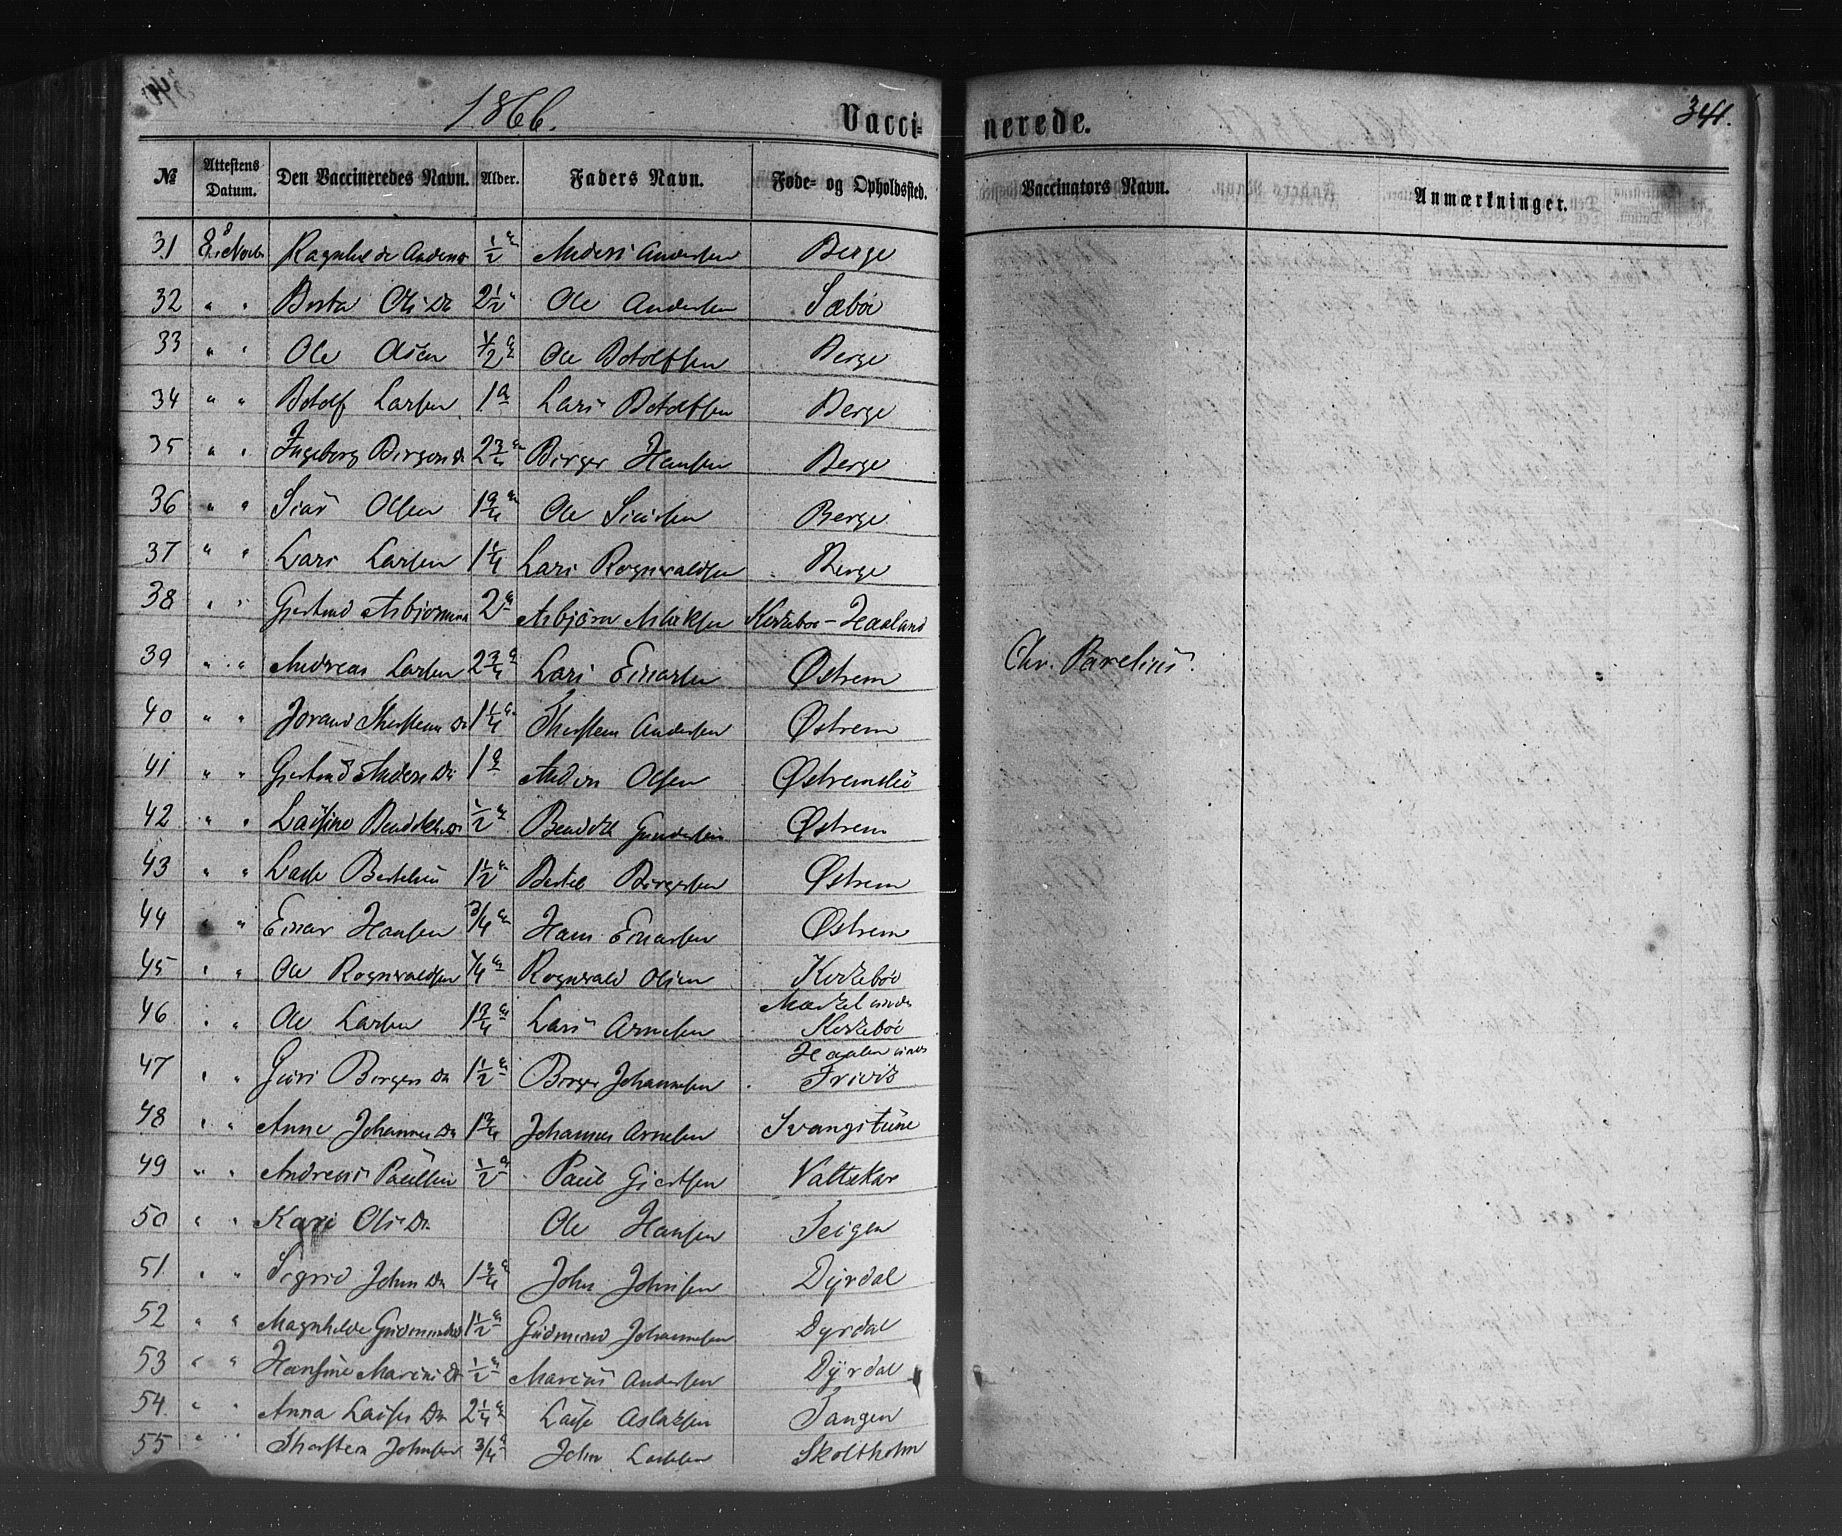 1866.
Vacci-
nerede.
341.
№
Attestens Datum.
Den Vaccineredes Navn.
Alder.
Faders Navn.
Føde- og Opholdssted.
Vaccinators Navn.
Anmærkninger.
31 8de Novbr Ragnhilde Anders 1/2 a Anders Andersen Berge
32 " " Berta Olsda 2 1/2 " Ole Andersen Sæbø
33 " " Ole Olsen 1/2 a Ole Botolfsen Berge
34 " " Botolf Larsen 1 a Lars Botolfsen Berge
35 " " Ingeborg Birgersda 2 3/4 a Birger Hansen Berge
36 " " Siur Olsen 1 3/4 a Ole Siursen Berge
37 " " Lars Larsen 1 1/4 Lars Rognvaldsen Berge
38 " " Gjertrud Asbjørns 2 a Asbjørn Aslaksen Kirkebø - Haaland
39 " " Andreas Larsen 2 3/4 a Lars Einarsen Østrem
Chr. Parelius.
40 " " Jorand Thorstensda 1 1/4 a Thorsten Andersen Østrem
41 " " Gjertrud Andersda 1 a Anders Olsen Østremslie
42 " " Laisine Bendiksda 1/2 a Bendik Gundersen Østrem
43 " " Lasse Bertelsen 1 1/2 a Bertel Birgersen Østrem
44 " " Einar Hansen 3/4 a Hans Einarsen Østrem
45 " " Ole Rognvaldsen 1/4 a Rognvald Olsen Kirkebø
46 " " Ole Larsen 1 3/4 a Lars Arnesen Kirkebø
47 " " Guri Børgesda 1 1/2 a Børge Johannesen
48 " " Anne Johannesda 1 3/4 Johannes Arnesen Svangstune
49 " " Andreas Paulsen 1/2 a Paul Giertsen Valtekar
50 " " Kari Olsda Ole Hansen Teigen
51 " " Sigrid Johnsda 1 3/4 a John Johnsen Dyrdal
52 " " Magnhilde Gudmunds 1 1/2 a Gudmund Johannesen Dyrdal
53 " " Hansine Marcusda 1/2 a Marcus Andersen Dyrdal
54 " " Anna Laisesda 2 1/4 a Laise Aslaksen Tangen
55 " " Thorsten Johnsen 3/4 a John Larsen Skoltholm